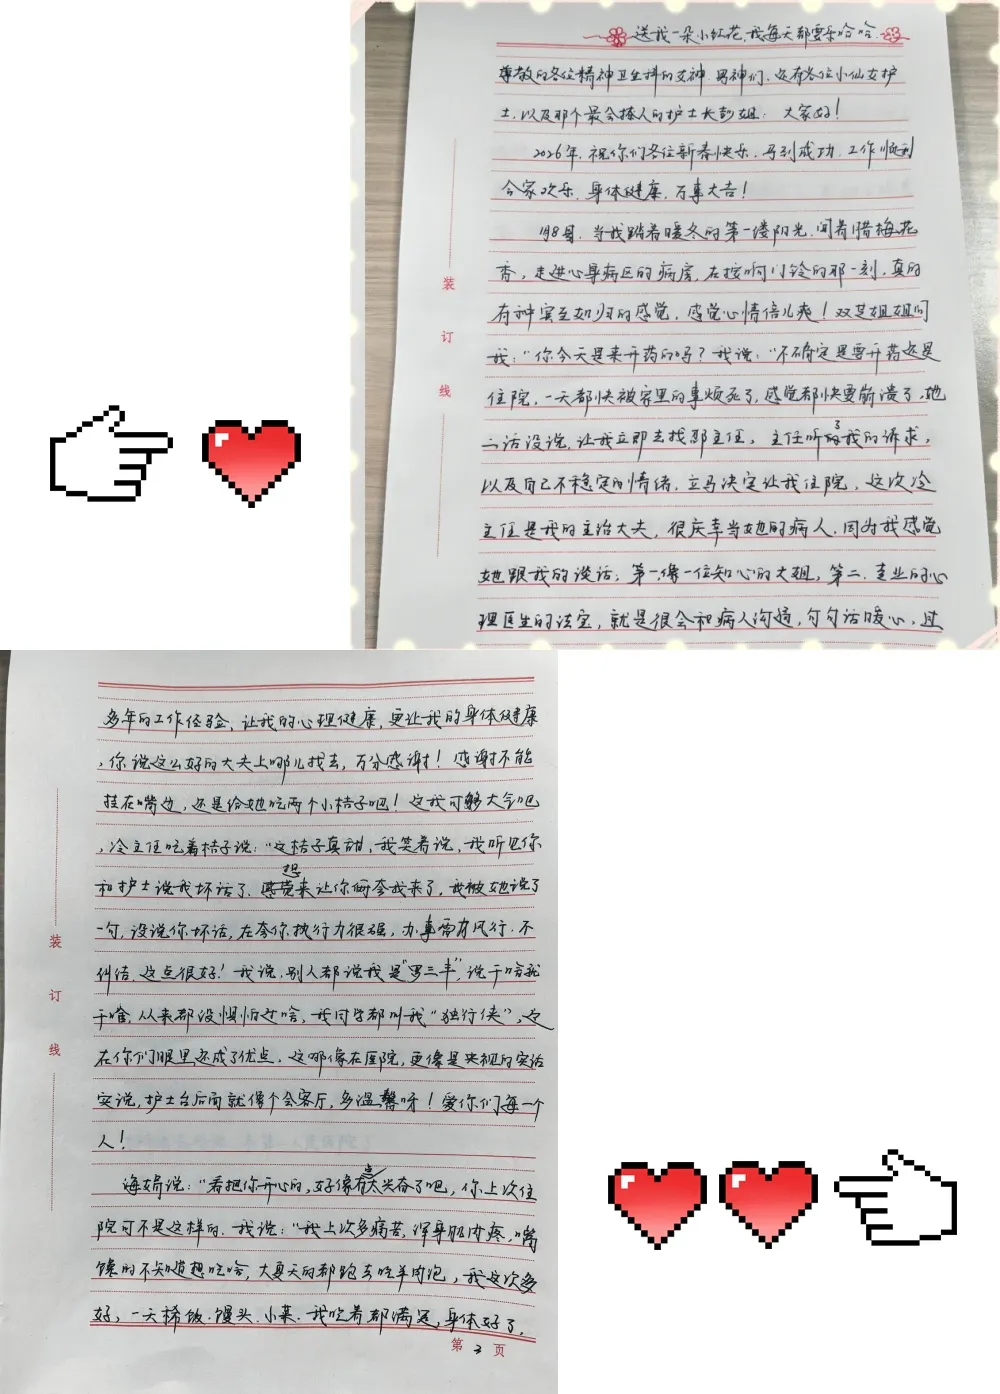 送我一朵小红花，我每天都要乐哈哈.
尊敬的各位精神卫生科的女神.男神们.还有各位小仙女护
士.以及那个最会撩人的护士长彭姐：大家好！
2026年.祝你们各位新春快乐.马到成功.工作顺利
合家欢乐.身体健康.万事大吉！
1月8日.当我踏着暖冬的第一缕阳光.闻着腊梅花
香，走进心身病区的病房，在按响门铃的那一刻，真的
有种宾至如归的感觉，感觉心情倍儿爽！双芝姐姐问
我："你今天是来开药的吗？我说："不确定是要开药还是
住院，一天都快被家里的事烦死了，感觉都快要崩溃了，她
二话没说，让我立即去找郭主任，主任听了我的诉求，
以及自己不稳定的情绪，立马决定让我住院，这次冷
主任是我的主治大夫，很庆幸当她的病人.因为我感觉
她跟我的谈话，第一，像一位知心的大姐，第二.专业的心
理医生的法宝，就是很会和病人沟通，句句话暖心，过
装
订
线
多年的工作经验，让我的心理健康，更让我的身体健康
，你说这么好的大夫上哪儿找去，万分感谢！感谢不能
挂在嘴边，还是给她吃两个小桔子吧！这我可够大方吧
，冷主任吃着桔子说："这桔子真甜，我笑着说，我听见你
和护士说我坏话了、想来让你俩夸我来了，我被她说了
一句，没说你坏话，在夸你执行力很强，办事雷厉风行.不
纠结.这点很好！我说，别人都说我是"罗三丰"，说干啥就
干啥，从来都没惧怕过啥，我同学都叫我"独行侠"，这
在你们眼里还成了优点，这哪像在医院，更像是央视的实话
实说，护士台后面就像个会客厅，多温馨呀！爱你们每一个
人！
海娟说："看把你开心的，好像有点太兴奋了吧，你上次住
院可不是这样的.我说："我上次多痛苦，浑身肌肉疼，嘴
馋的不知道想吃啥，大夏天的都跑去吃羊肉泡，我这次多
好，一天稀饭.馒头.小菜.我吃着都满足，身体好了，
装
订
线
第 3 页